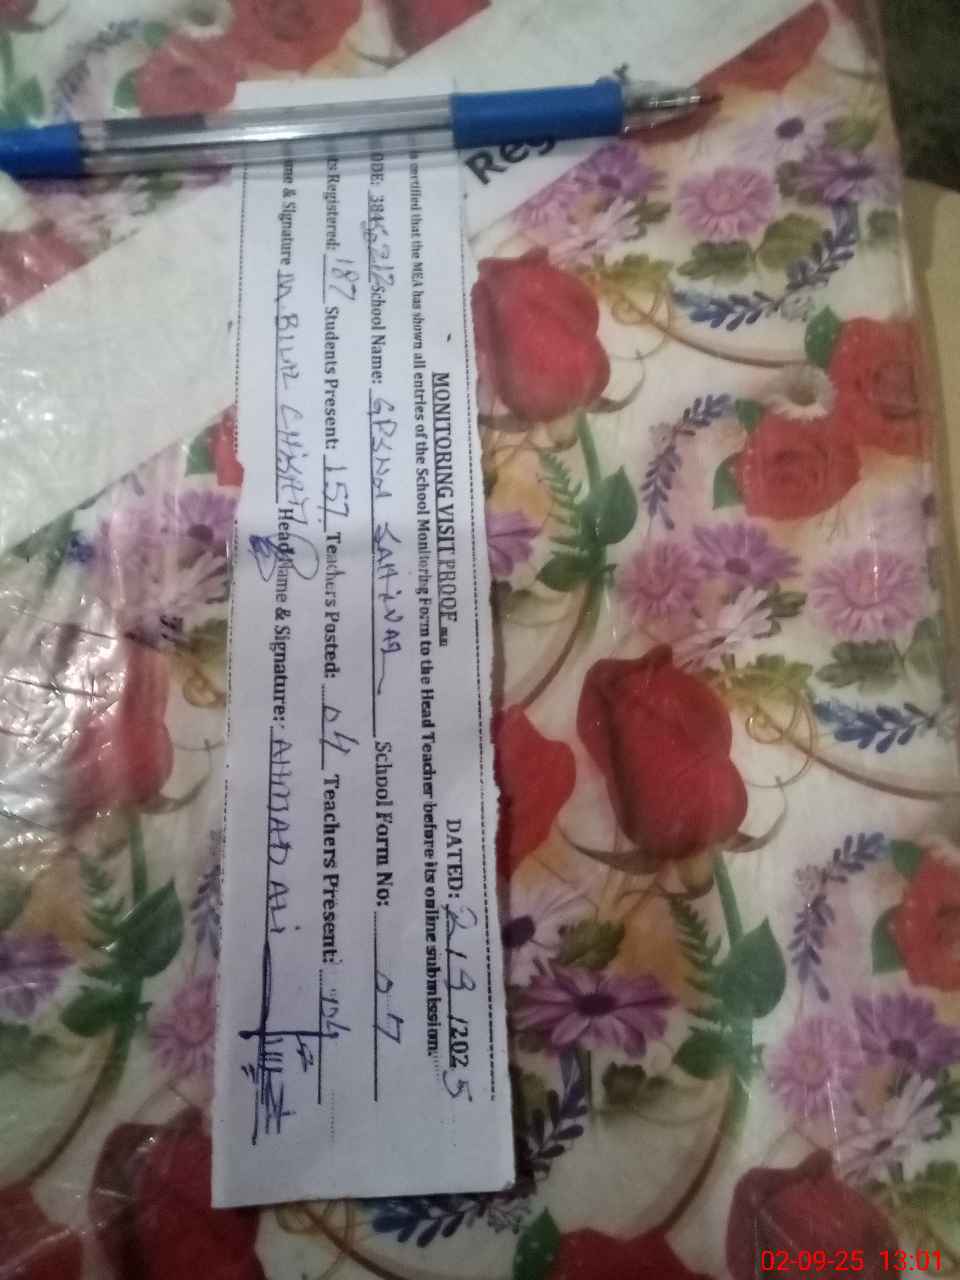 Reg
MONITORING VISIT PROOF DATED: 2/9/2025
certified that the MEA has shown all entries of the School Monitoring Form to the Head Teacher before its online submission.
ODE: 384 212 School Name: School Form No: 07
ts Registered: 187 Students Present: 157 Teachers Posted: 04 Teachers Present: 04
me & Signature M BILAL Head Name & Signature: AHMAD ALI
02-09-25 13:01